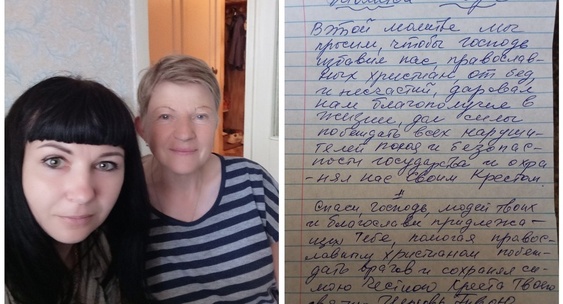 В этой молитве мы
просим, чтобы господь
избавил нас, православ-
ных христиан от бед
и несчастий, даровал
нам благополучие в
жизни, дал силы
побеждать всех наруши-
телей покоя и безопас-
ности государства и охра-
-нял нас Своим Крестом.
Спаси, господь, людей твоих
и благослови принадлежа-
щих Тебе, помогая право-
славным христианам побеж-
дать врагов и сохраняя си-
лою Честного Креста Твоего